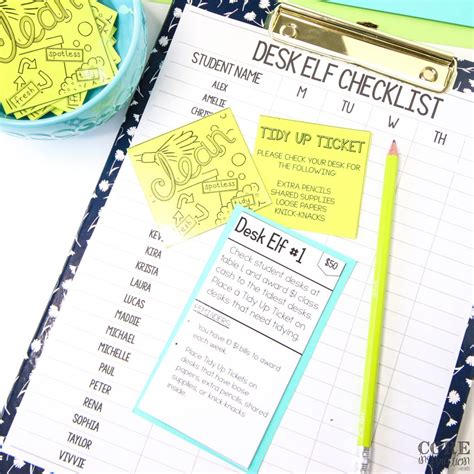 DESK ELF CHECKLIST
STUDENT NAME M TU W TH
ALEX
AMELIE
CHRIS
Clean
spotless
fresh
tidy
TIDY UP TICKET
PLEASE CHECK YOUR DESK FOR
THE FOLLOWING
EXTRA PENCILS
SHARED SUPPLIES
LOOSE PAPERS
KNICK-KNACKS
Clean
spotless
fresh
KEVIN
KIRA
KRISTA
LAURA
LUCAS
MADDIE
MICHAEL
MICHELLE
PAUL
PETER
RENA
SOPHIA
TAYLOR
VIVVIE
Desk Elf #1
$50
Check student desks at
table 1, and award $1 class
cash to the tidiest desks.
Place a Tidy Up Ticket on
desks that need tidying.
REMINDERS
You have 10 $1 bills to award
each week.
Place Tidy Up Tickets on
desks that have loose
papers, extra pencils, shared
supplies, or knick knacks
inside.
CORE
INSPIRATION